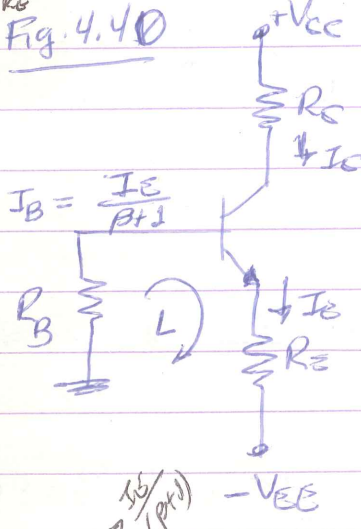 RE
Fig. 4.40
+VCC
RC
IC
IB = IE
β+1
RB
L
IE
RE
IE/(β+1)
-VEE